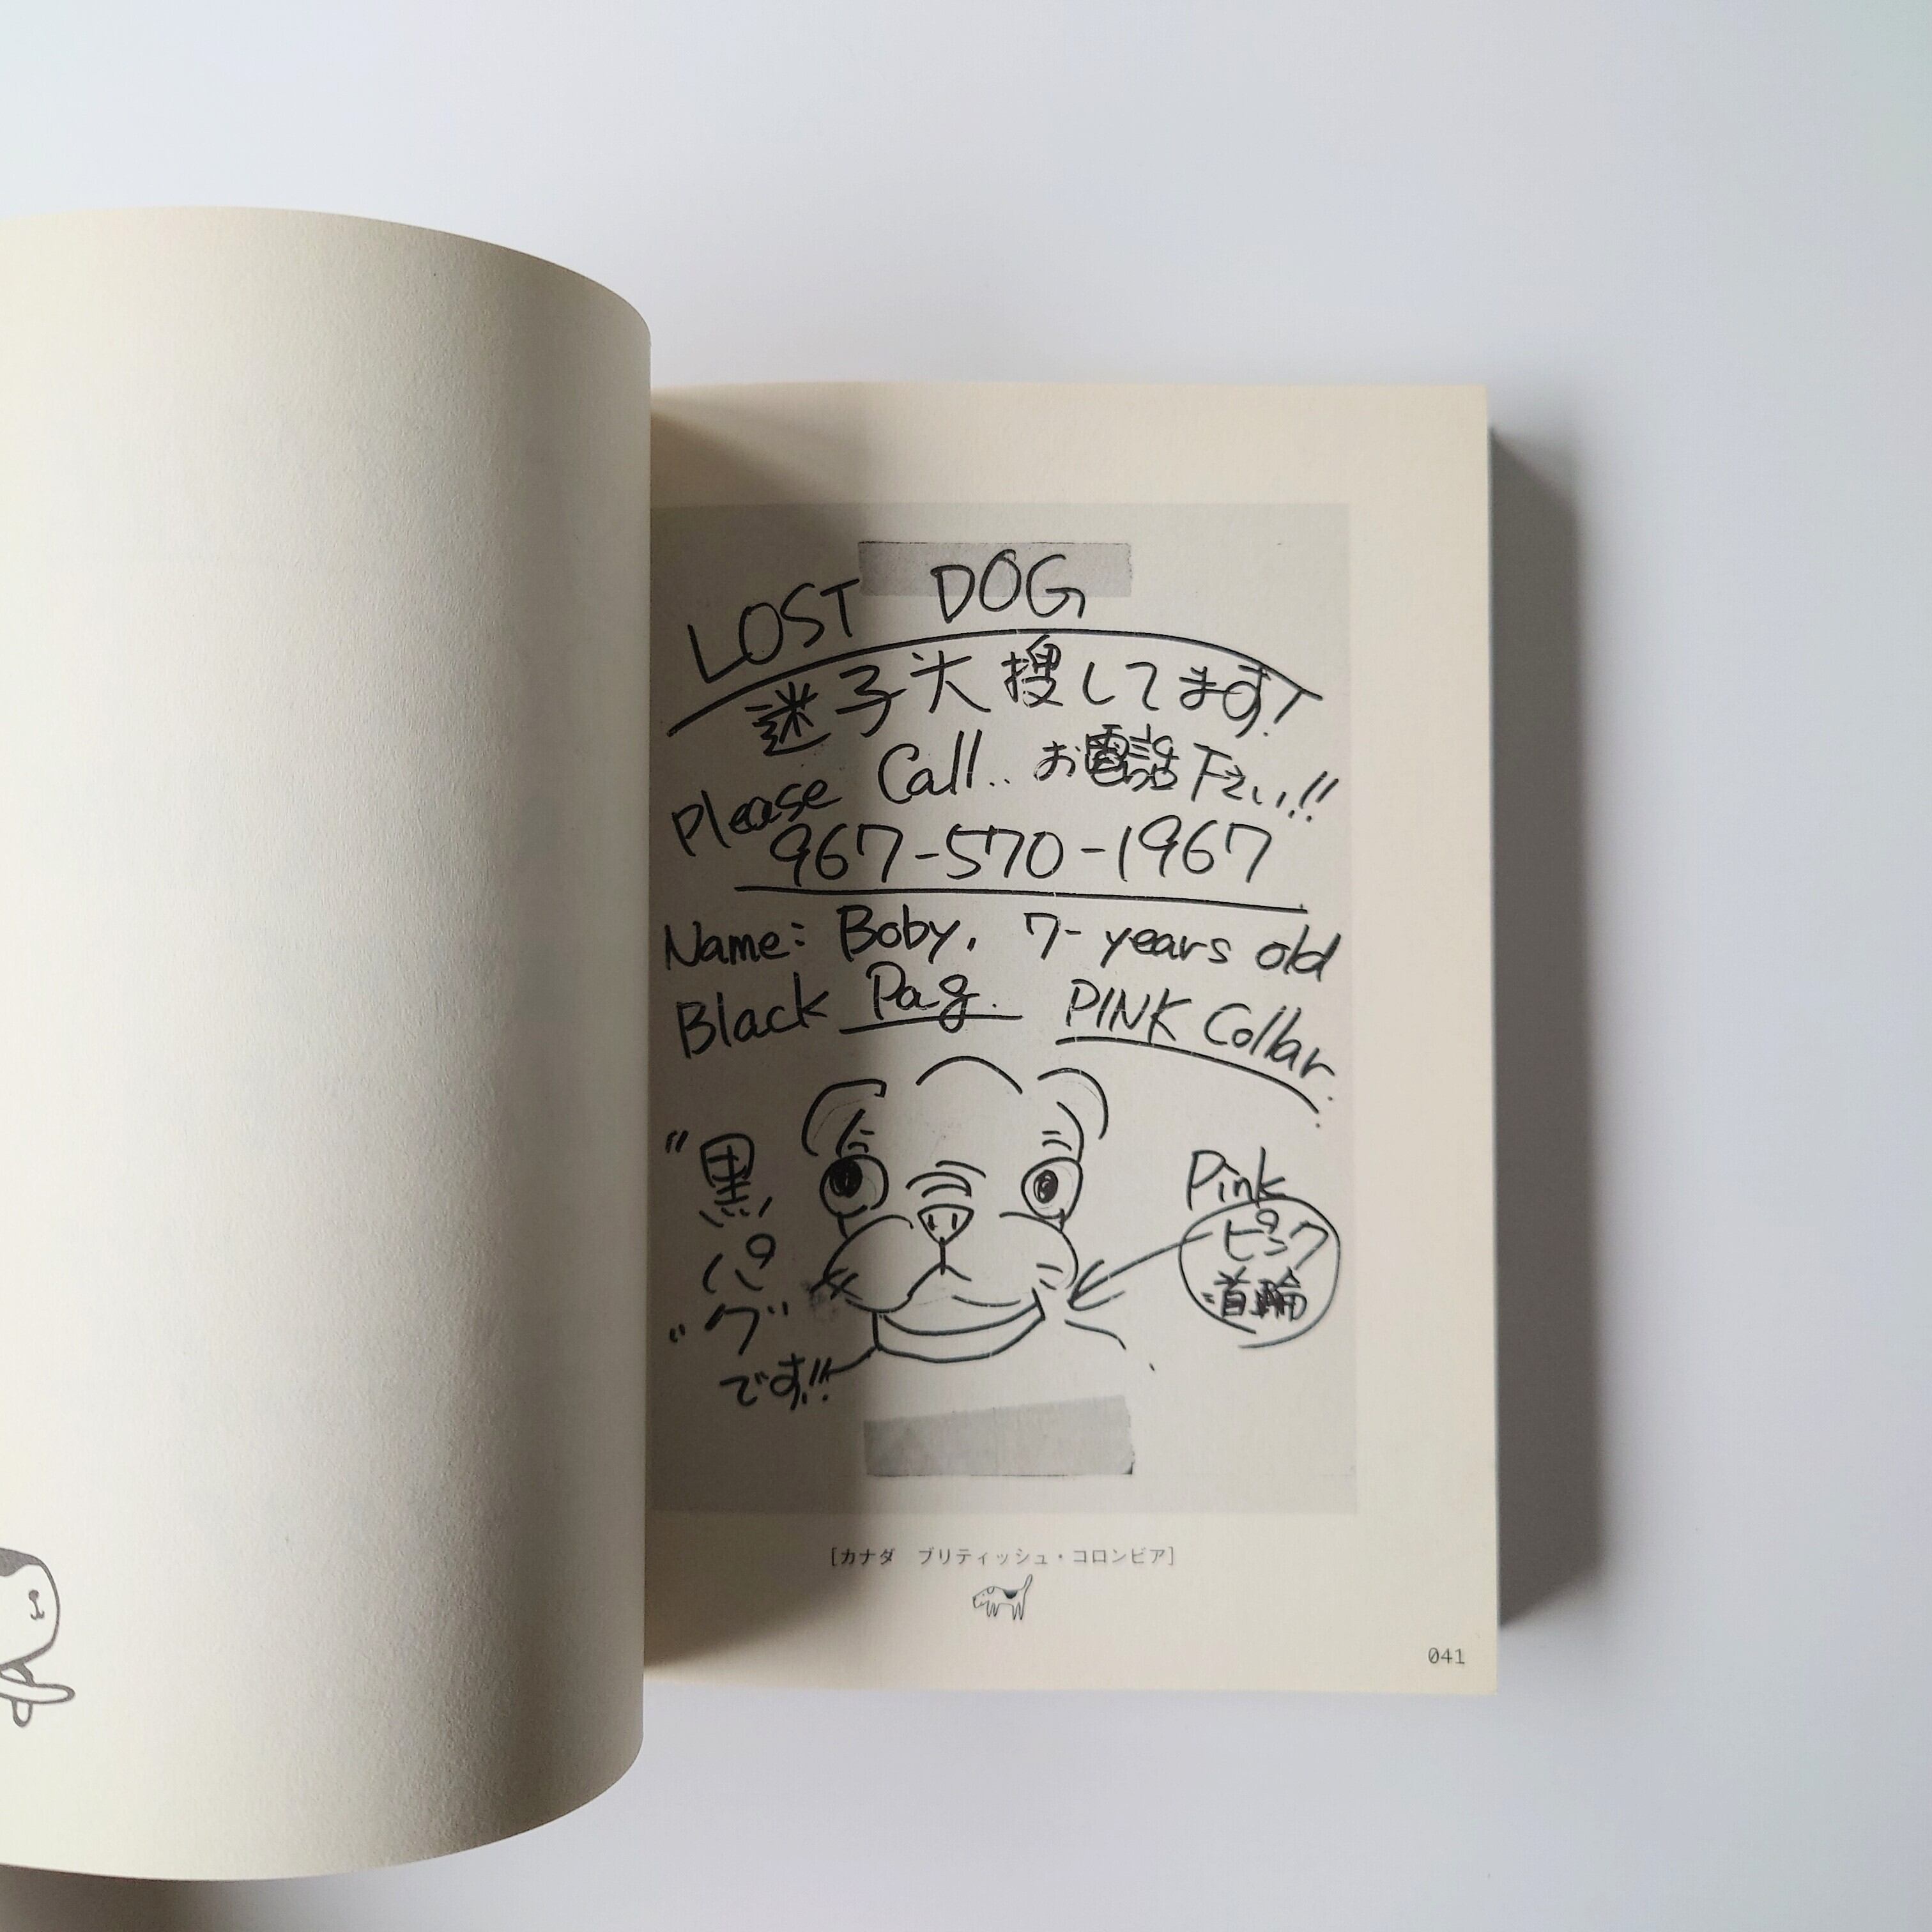 LOST DOG
迷子犬捜してます!
Please Call.. お電話下さい!!
967-570-1967
Name: Boby, 7-years old
Black Pag. PINK Collar.
"黒
パ
グ"
です!!
Pink
ピンク
首輪
[カナダ ブリティッシュ・コロンビア]
041